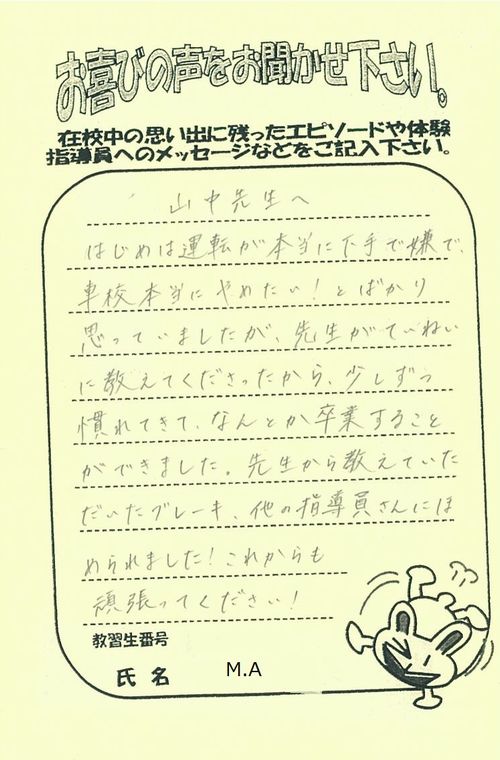 お喜びの声をお聞かせ下さい。
在校中の思い出に残ったエピソードや体験
指導員へのメッセージなどをご記入下さい。
山中先生へ
はじめは運転が本当に下手で嫌で、
車校本当にやめたい！とばかり
思っていましたが、先生がていねい
に教えてくださったから、少しずつ
慣れてきて、なんとか卒業すること
ができました。先生から教えていた
だいたブレーキ、他の指導員さんにほ
められました！これからも
頑張ってください！
教習生番号
氏名 M.A